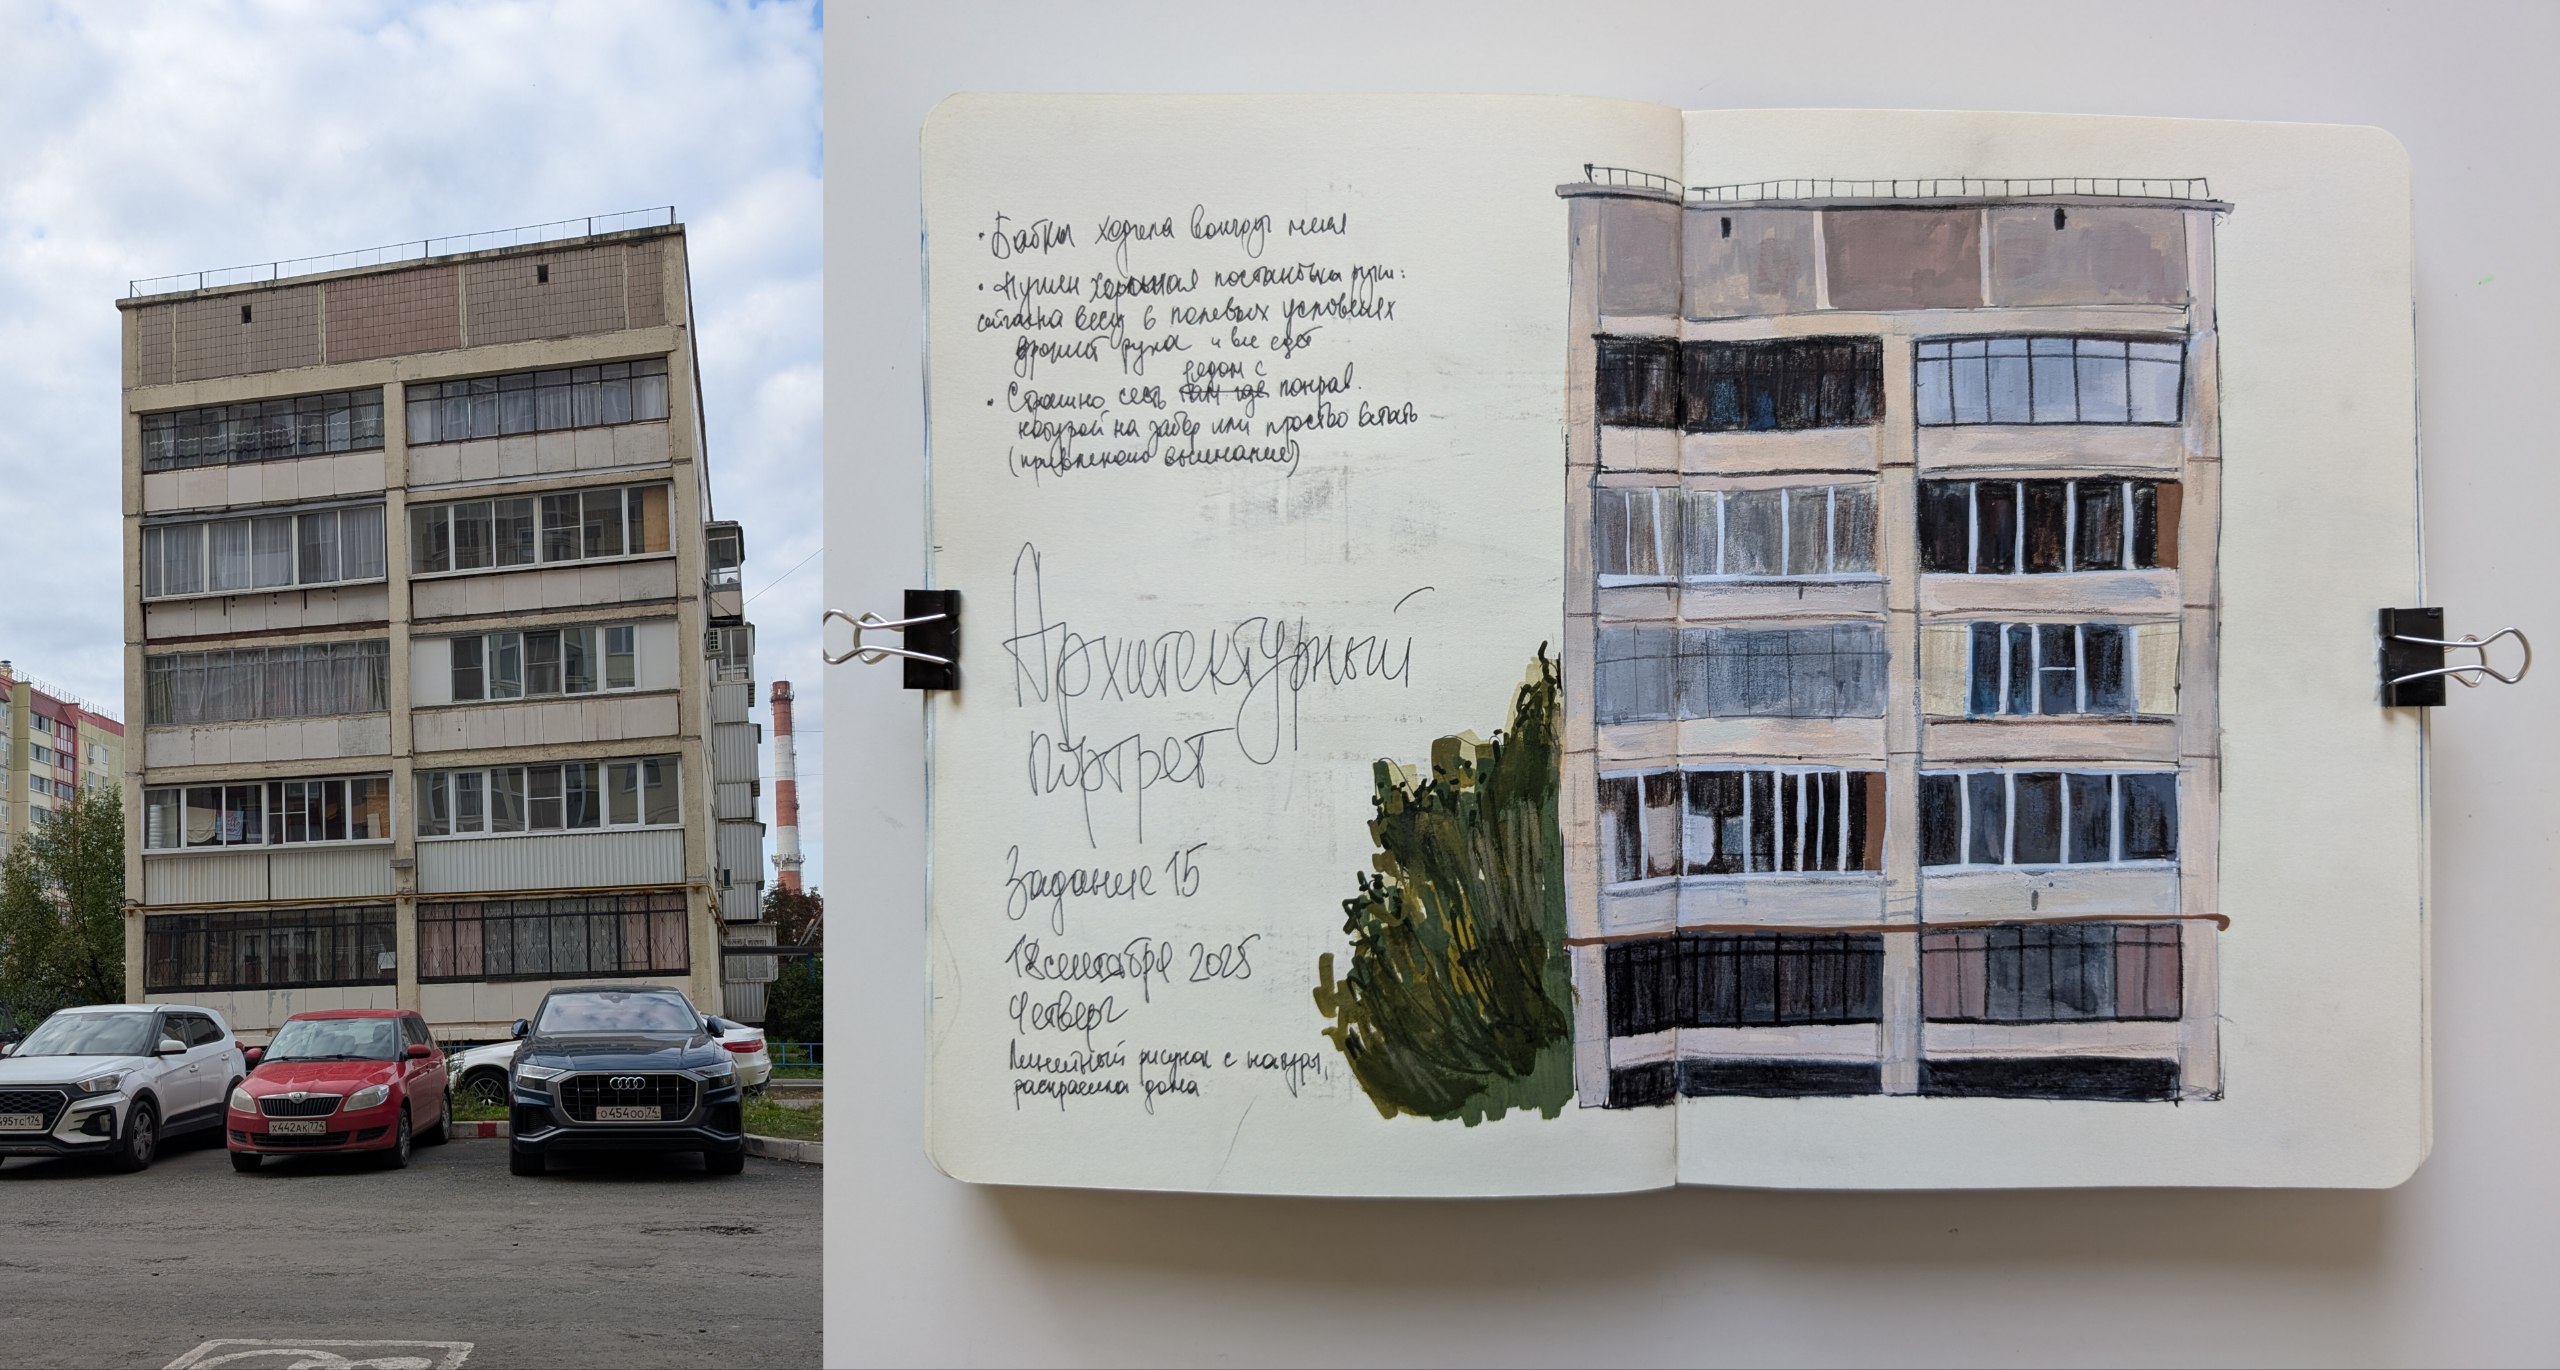 495тс 174
х442ак 774
о454оо 74
• Бабки ходила вокруг меня
• Нужен хорошая постановка руки:
весу в полевых условиях
дрожит рука и все едет
рядом с
• Страшно сесть там где понрав.
натурой на забор или просто встать
(привлекаю внимание)
Архитектурный
портрет
Задание 15
18 сентября 2025
Четверг
Линейный рисунок с натуры,
раскраска дома